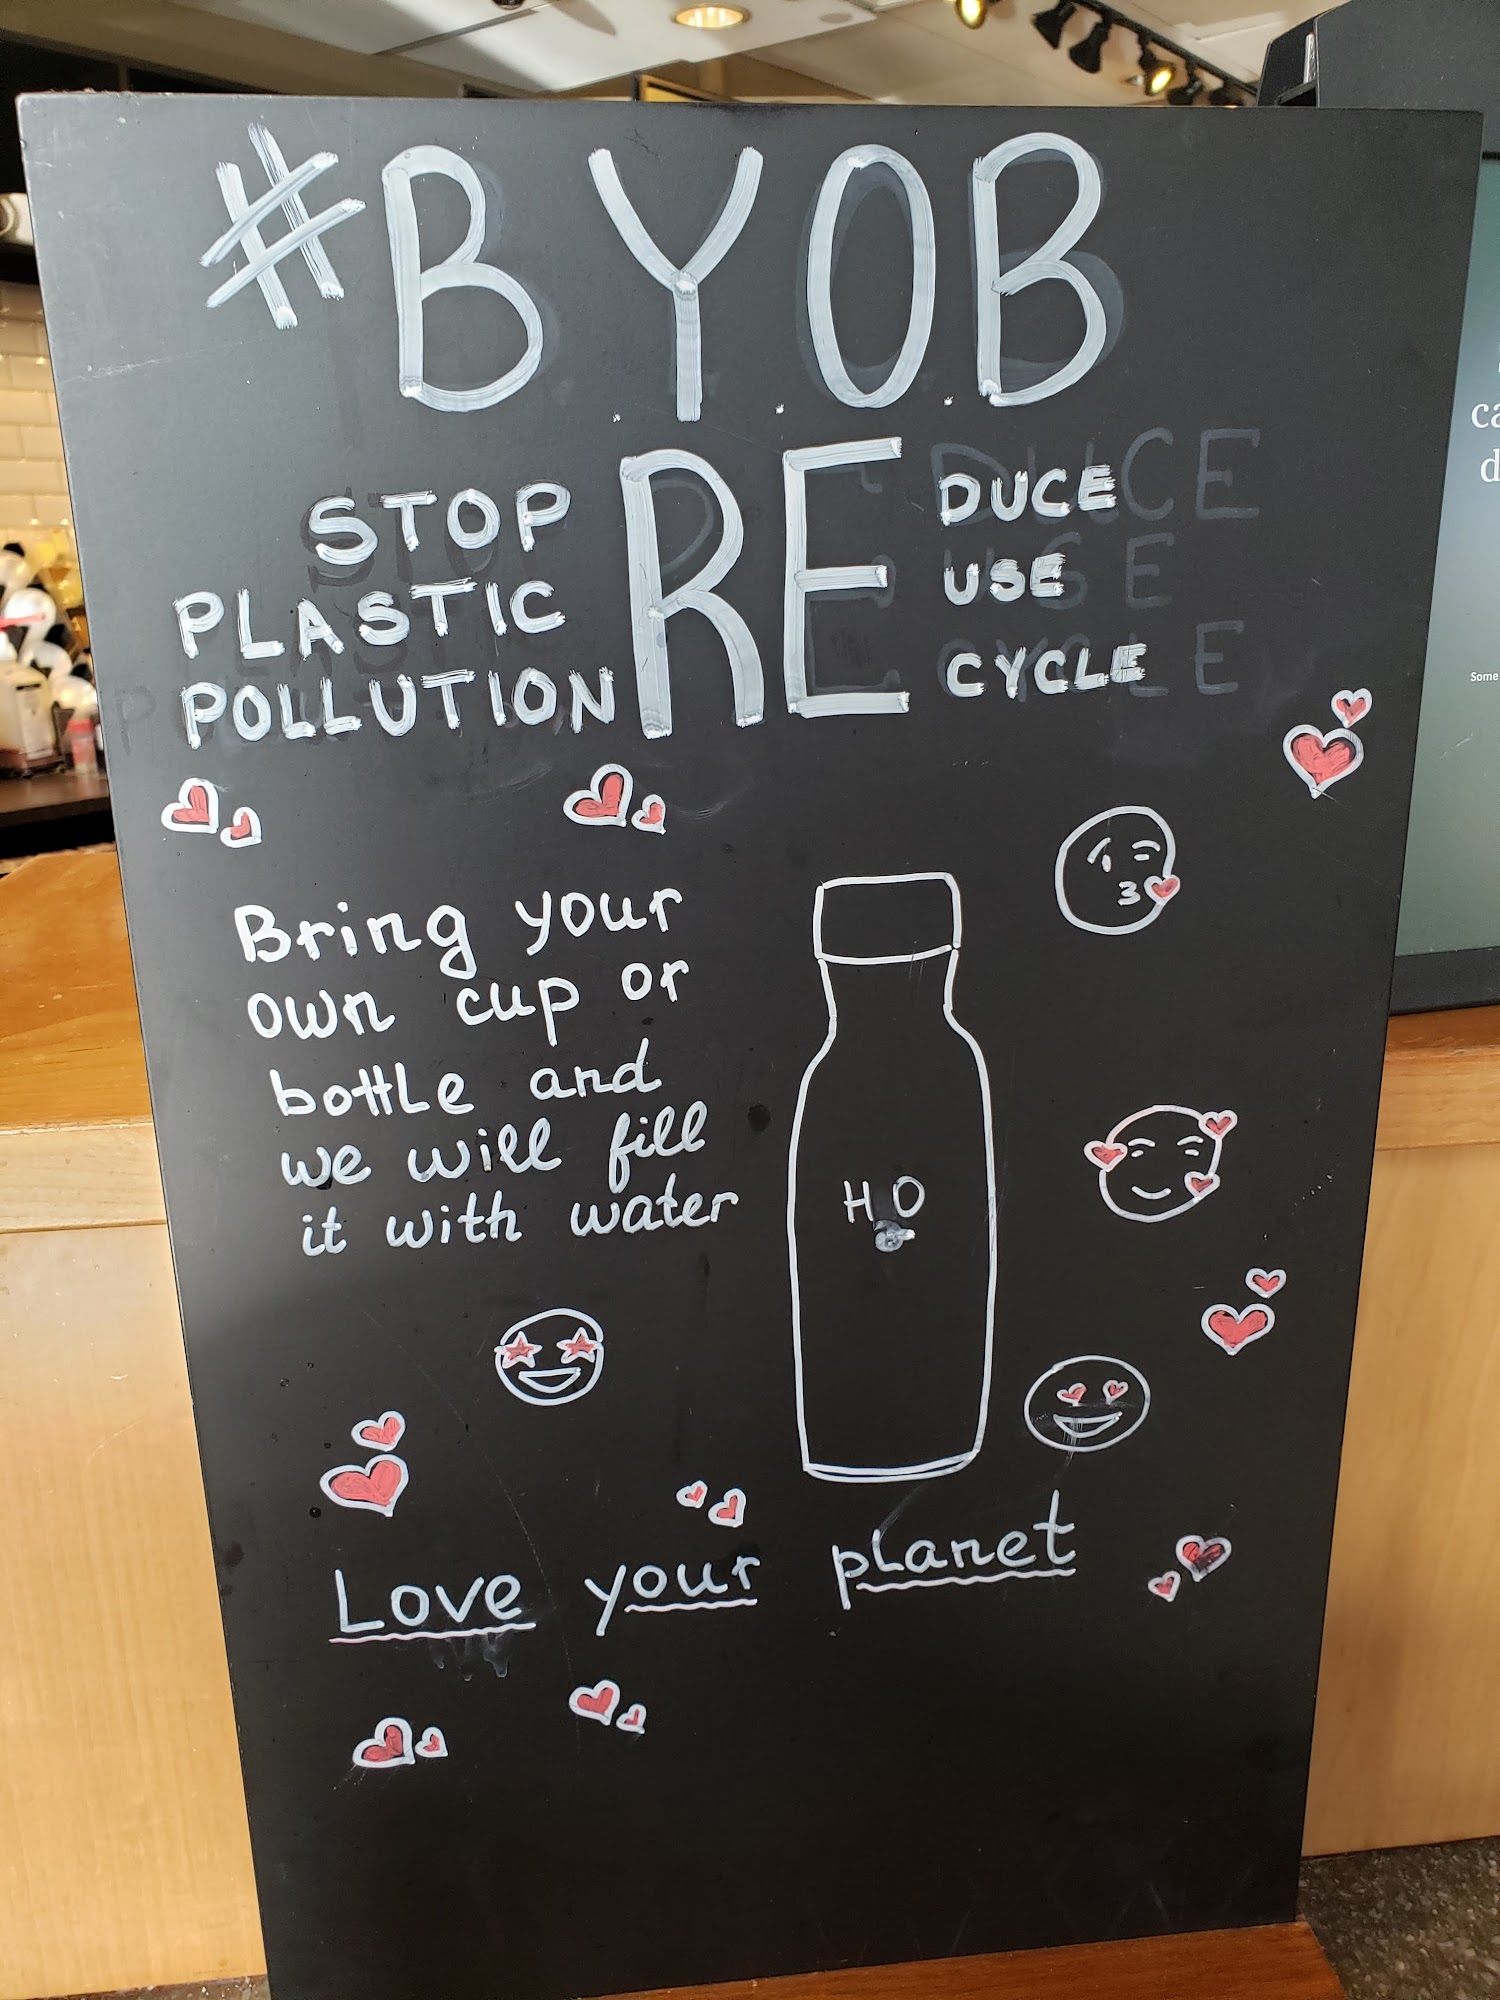 #B.Y.O.B
STOP
PLASTIC
POLLUTION
RE
DUCE
USE
CYCLE
Bring your
own cup or
bottle and
we will fill
it with water
H O
Love your planet
Some